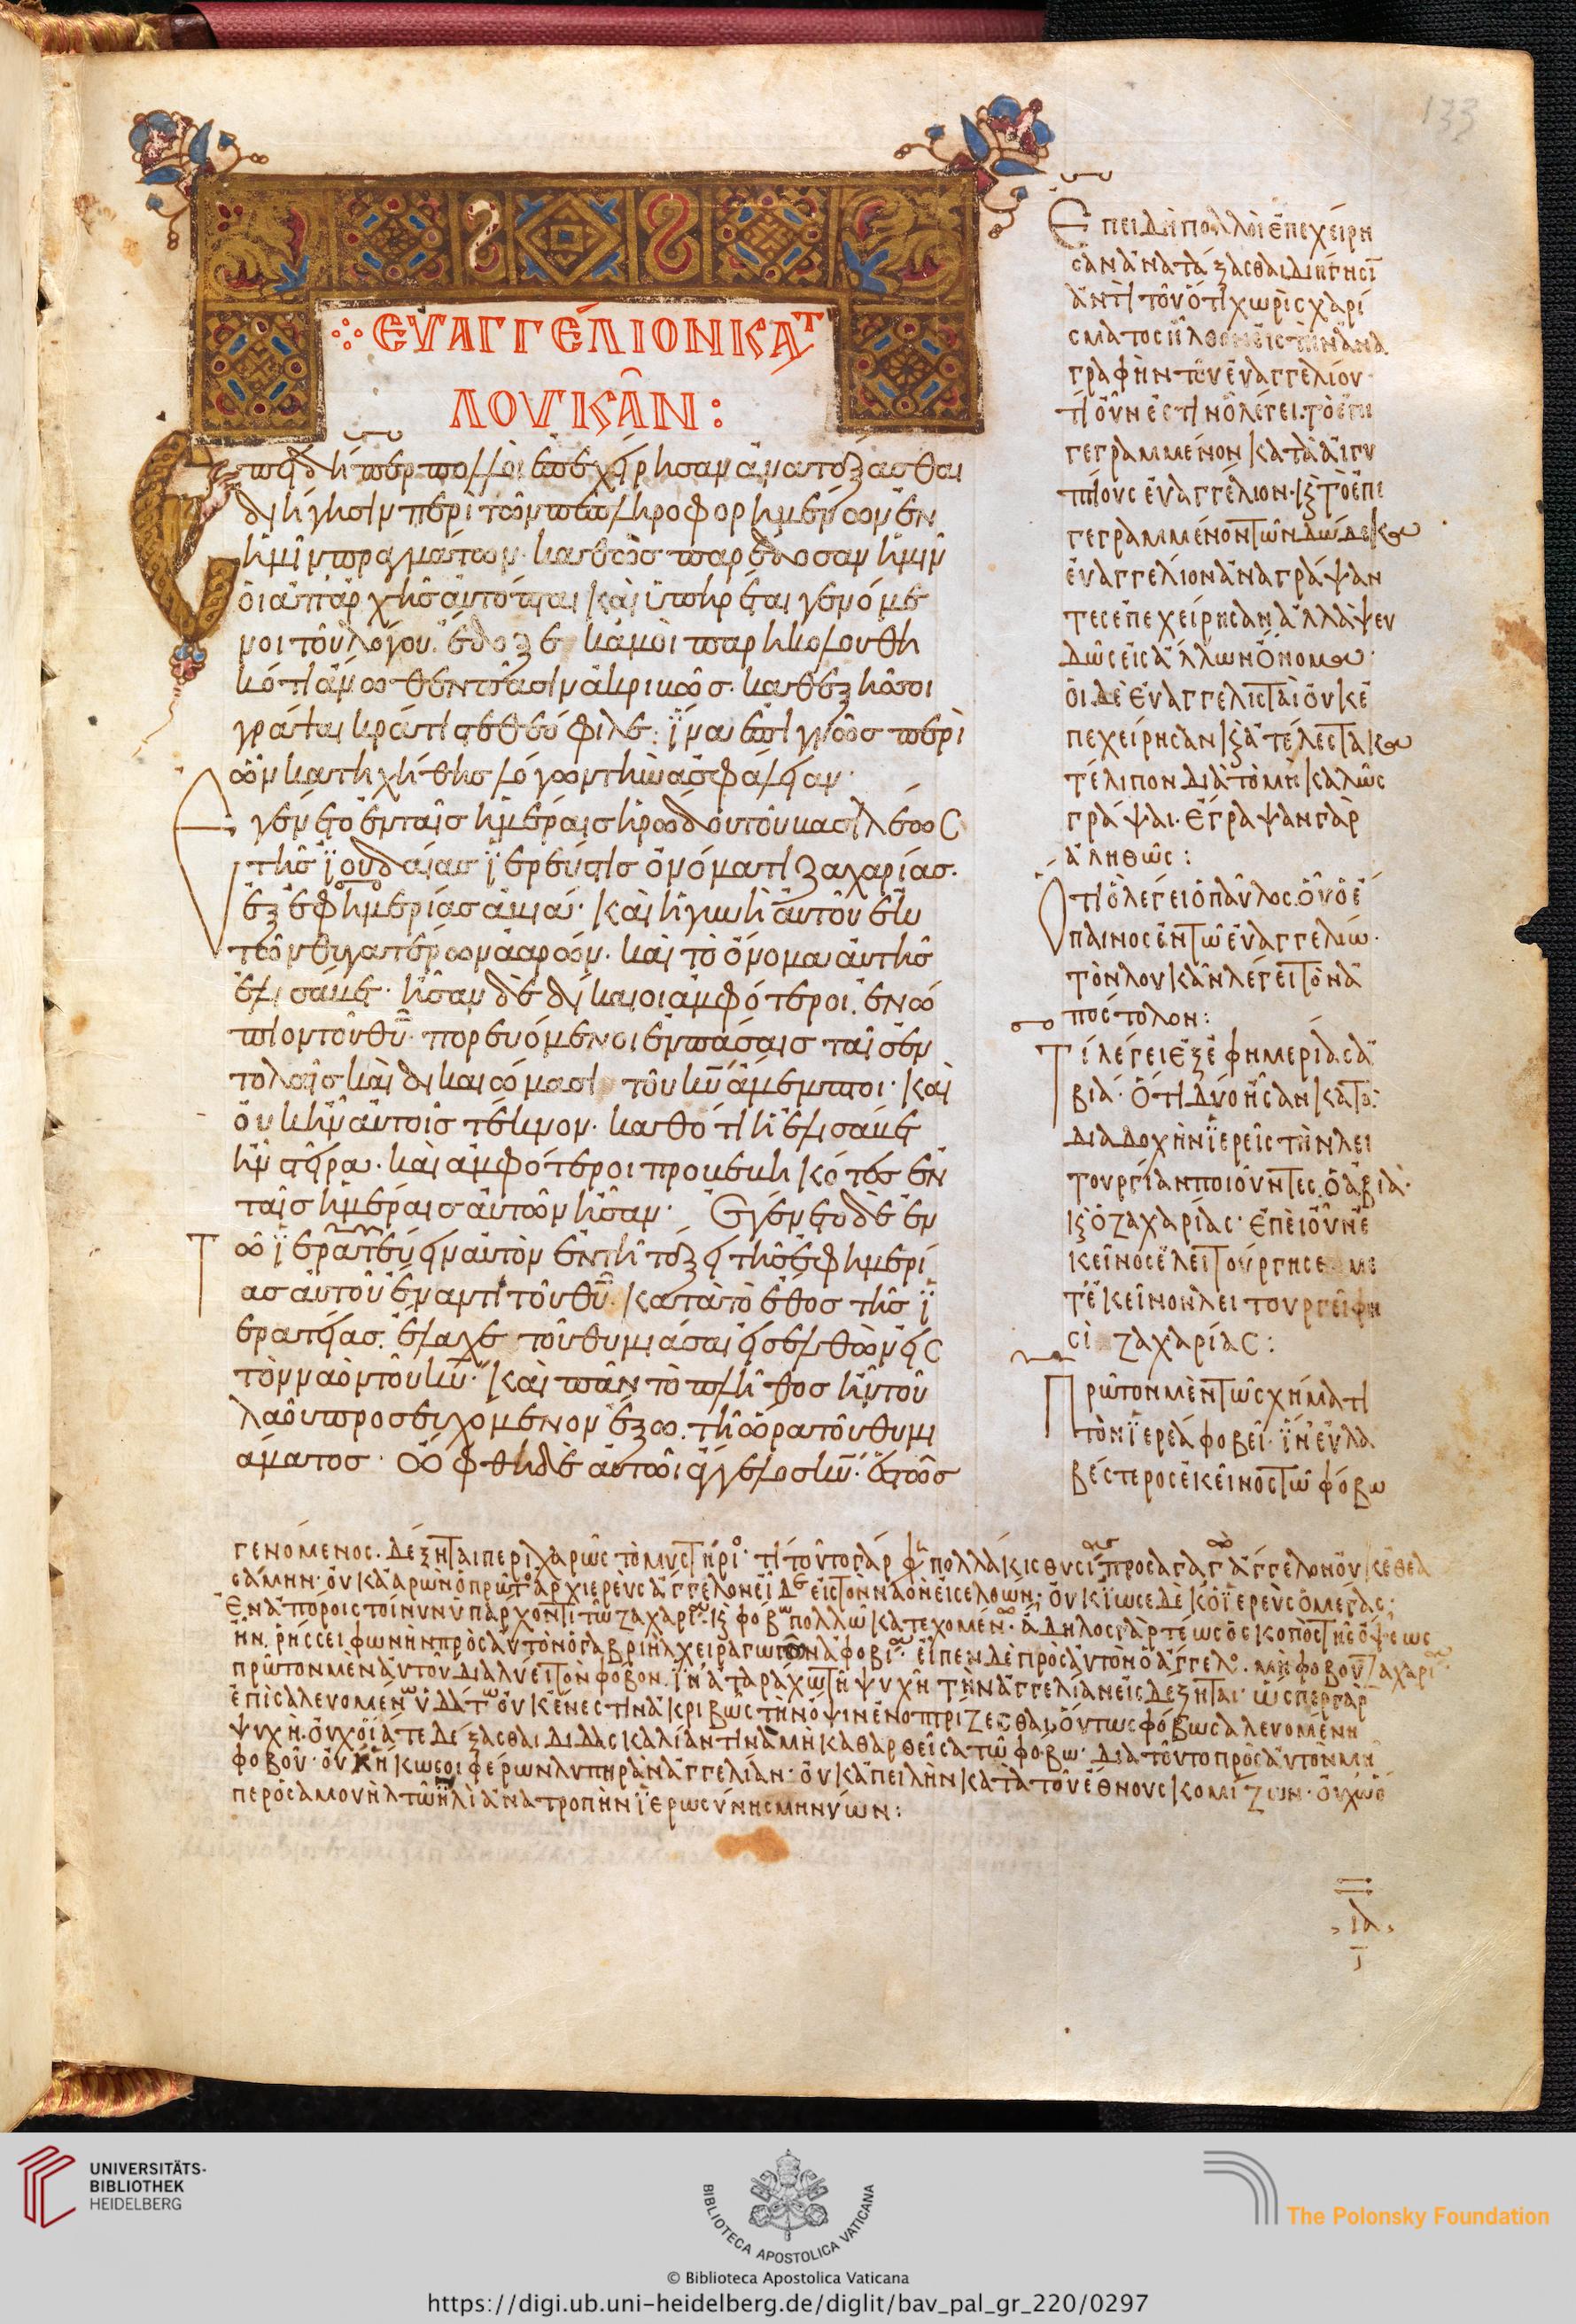 133
ΕΥΑΓΓΕΛΙΟΝ ΚΑΤ
ΛΟΥΚΑΝ:
Ἐπειδήπερ πολλοὶ ἐπεχείρησαν ἀνατάξασθαι
διήγησιν περὶ τῶν πεπληροφορημένων ἐν
ἡμῖν πραγμάτων· καθὼς παρέδοσαν ἡμῖν
οἱ ἀπ' ἀρχῆς αὐτόπται καὶ ὑπηρέται γενόμε
νοι τοῦ λόγου. ἔδοξε κἀμοὶ παρηκολουθη
κότι ἄνωθεν πᾶσιν ἀκριβῶς. καθεξῆς σοι
γράψαι κράτιστε θεόφιλε· ἵνα ἐπιγνῶς περὶ
ὧν κατηχήθης λόγων τὴν ἀσφάλειαν·
Ἐγένετο ἐν ταῖς ἡμέραις ἡρώδου τοῦ βασιλέως
τῆς ἰουδαίας ἱερεύς τις ὀνόματι ζαχαρίας.
ἐξ ἐφημερίας ἀβιά· καὶ ἡ γυνὴ αὐτοῦ ἐκ
τῶν θυγατέρων ἀαρών. καὶ τὸ ὄνομα αὐτῆς
ἐλισάβετ· ἦσαν δὲ δίκαιοι ἀμφότεροι. ἐνώ
πιον τοῦ θῦ· πορευόμενοι ἐν πάσαις ταῖς ἐν
τολαῖς καὶ δικαιώμασι τοῦ κῦ ἄμεμπτοι· καὶ
οὐκ ἦν αὐτοῖς τέκνον. καθότι ἡ ἐλισάβετ
ἦν στεῖρα. καὶ ἀμφότεροι προβεβηκότες ἐν
ταῖς ἡμέραις αὐτῶν ἦσαν· Ἐγένετο δὲ ἐν
τῶ ἱερατεύειν αὐτὸν ἐν τῆ τάξει τῆς ἐφημερί
ας αὐτοῦ ἔναντι τοῦ θῦ. κατὰ τὸ ἔθος τῆς ἱ
ερατείας. ἔλαχε τοῦ θυμιάσαι εἰσελθὼν εἰς
τὸν ναὸν τοῦ κῦ· καὶ πᾶν τὸ πλῆθος ἦν τοῦ
λαοῦ προσευχόμενον ἔξω. τῆ ὥρα τοῦ θυμι
άματος· ὤφθη δὲ αὐτῶι ἄγγελος κῦ· ἑστὼς
Ἐπειδὴ πολλοὶ ἐπεχείρη
σαν ἀνατάξασθαι διήγησῑ
ἀντὶ τοῦ ὅτι χωρὶς χαρί
σματος ἦλθον εἰς τὴν ἀνα
γραφὴν τοῦ εὐαγγελίου·
τί οὖν ἐστὶν ὃ λέγει. τὸ ἐπι
γεγραμμένον κατὰ αἰγυ
πτίους εὐαγγέλιον· κ τὸ ἐπι
γεγραμμένον τῶν δώδεκα
εὐαγγέλιον ἀναγράψαν
τες ἐπεχείρησαν ἀλλὰ ψευ
δῶς εἰς ἄλλων ὄνομα·
οἱ δὲ εὐαγγελισταὶ οὐκ ἐ
πεχείρησαν κ ἀτέλεστα κα
τέλιπον διὰ τὸ μὴ καλῶς
γράψαι. ἔγραψαν γὰρ
ἀληθῶς:
Ὅτι ὃ λέγει ὁ παῦλος. οὗ ὁ ἔ
παινος ἐν τῶ εὐαγγελίω·
τὸν λουκᾶν λέγει τὸν ἀ
πόστολον:
Τί λέγει ἐξ ἐφημερίας ἀ
βιά· ὅτι δύο ἦσαν κατὰ
διαδοχὴν ἱερεῖς τὴν λει
τουργίαν ποιοῦντες. ὁ ἀβιὰ·
κ ὁ ζαχαρίας· ἐπεὶ οὖν ἐ
κεῖνος ἐλειτούργησε με
τ' ἐκεῖνον λειτουργεῖ φη
σὶ ζαχαρίας:
Πρῶτον μὲν τῶ σχήματι
τὸν ἱερέα φοβεῖ· ἵν' εὐλα
βέστερος ἐκεῖνος τῶ φόβω
γενόμενος. δέξηται περιχαρῶς τὸ μυστήριο· τί τοῦτο γάρ φη πολλάκις θυσίας προσαγαγὼν ἄγγελον οὐκ ἐθεα
σάμην· οὐκ ἀαρὼν ὁ πρῶτος ἀρχιερεὺς ἄγγελον εἶδεν εἰς τὸν ναὸν εἰσελθών· οὐκ ἰωσεδὲκ ὁ ἱερεὺς ὁ μέγας·
Ἐν ἀπόροις τοίνυν ὑπάρχοντι τῶ ζαχαρία κ φόβω πολλῶ κατεχομένω· ἄδηλος γὰρ τέως ὁ σκοπὸς τῆς ὄψεως
ἦν. ῥήσσει φωνὴν πρὸς αὐτὸν ὁ γαβριὴλ χειραγωγὸν ἀφοβίας· εἶπεν δὲ πρὸς αὐτὸν ὁ ἄγγελος. μὴ φοβοῦ ζαχαρία
πρῶτον μὲν αὐτοῦ διαλύει τὸν φόβον. ἵν' ἀταράχω τῆ ψυχῆ τὴν ἀγγελίαν εἰσδέξηται· ὥσπερ γὰρ
ἐπισαλευομένων ὑδάτων οὐκ ἔνεστιν ἀκριβῶς τὴν ὄψιν ἐνοπτρίζεσθαι. οὕτως φόβω σαλευομένη
ψυχὴ. οὐχ οἵα τε δέξασθαι διδασκαλίαν τινὰ μὴ καθαρθεῖσα τῶ φόβω· διὰ τοῦτο πρὸς αὐτὸν μὴ
φοβοῦ· οὐχ ἥκω σοι φέρων λυπηρὰν ἀγγελίαν· οὐκ ἀπειλὴν κατὰ τοῦ ἔθνους κομίζων· οὐχ ὥσ
περ ὁ σαμουὴλ τῶ ἠλὶ ἀνατροπὴν ἱερωσύνης μηνύων:
ιδ
UNIVERSITÄTS-
BIBLIOTHEK
HEIDELBERG
BIBLIOTECA APOSTOLICA VATICANA
The Polonsky Foundation
© Biblioteca Apostolica Vaticana
https://digi.ub.uni-heidelberg.de/diglit/bav_pal_gr_220/0297